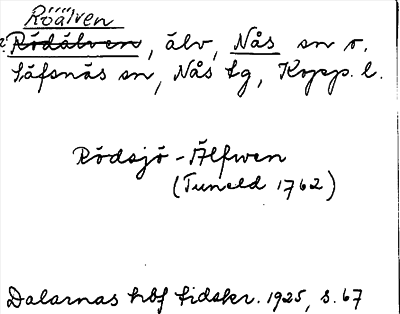 Röälven
Rödälven, älv, Nås sn o.
Säfsnäs sn, Nås tg, Kopp. l.
Rödsjö-Älfwen
(Tuneld 1762)
Dalarnas hbf tidskr. 1925, s. 67